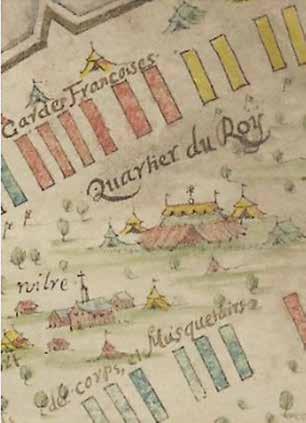 Gardes Françoises
Quartier du Roÿ
de corps, et Musquetaires